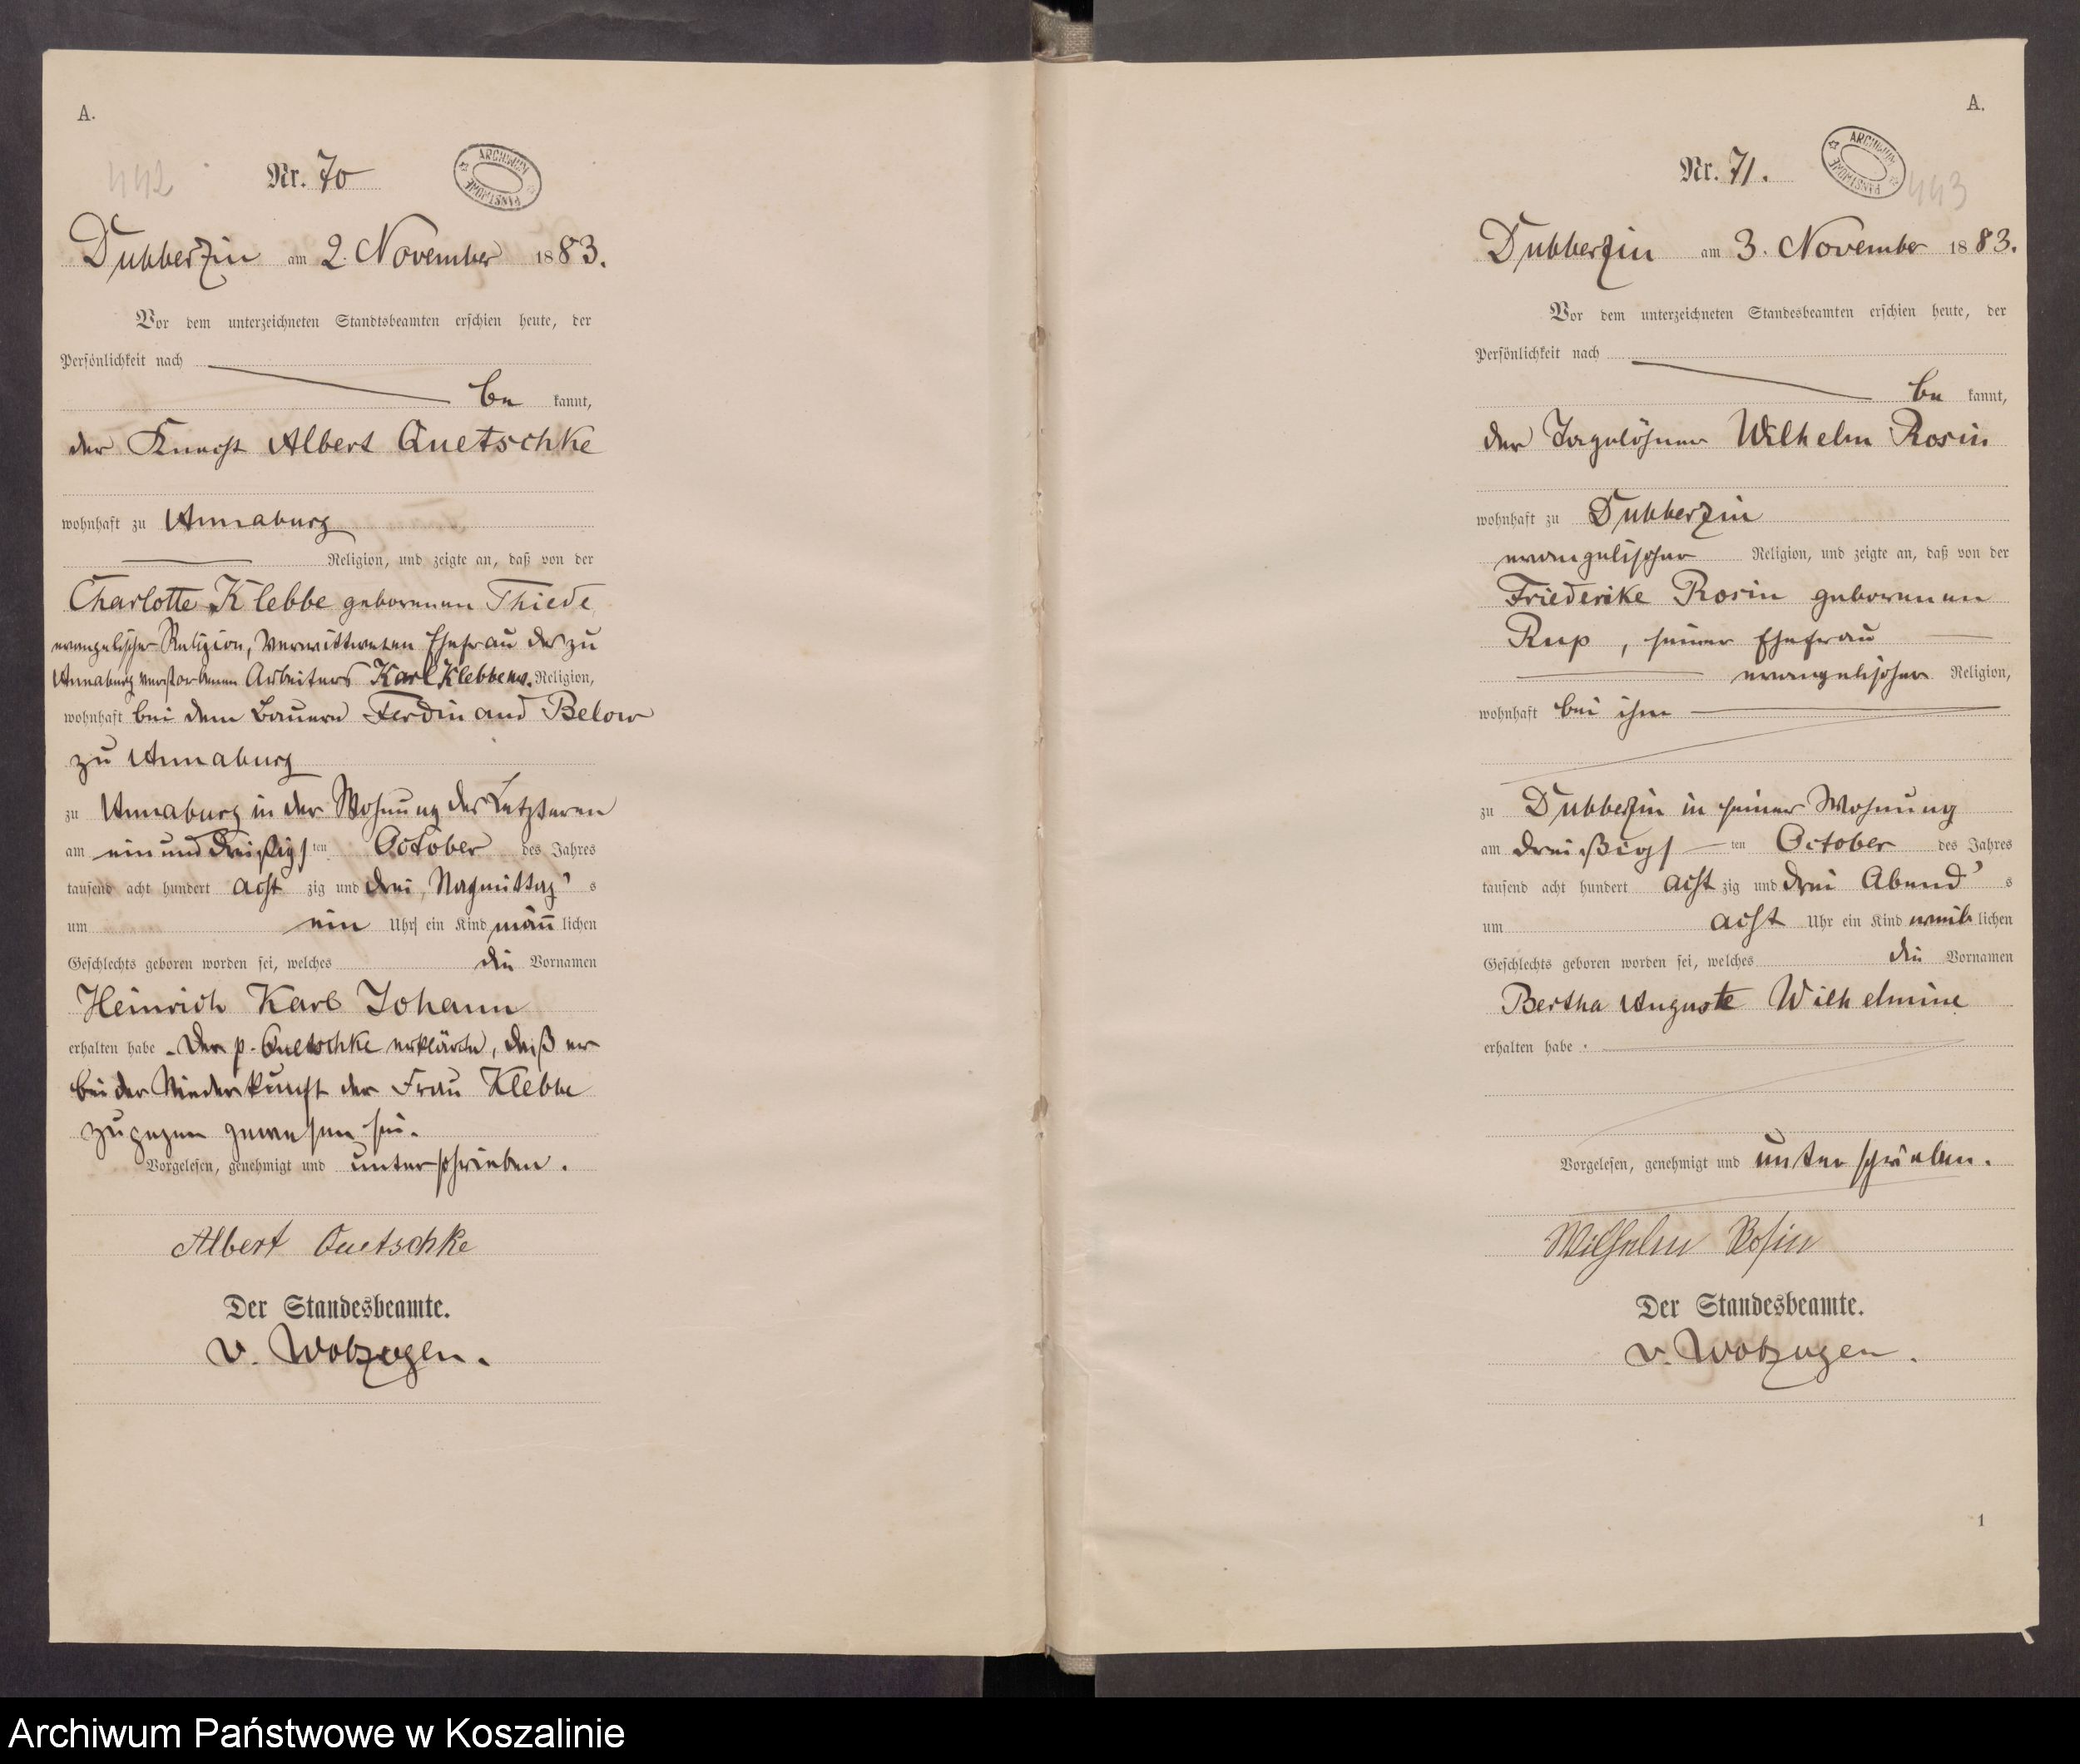 A.
442
Nr. 70
ARCHIWUM PAŃSTWOWE
Dubberzin am 2. November 1883.
Vor dem unterzeichneten Standtsbeamten erschien heute, der
Persönlichkeit nach
be kannt,
der Knecht Albert Quetschke
wohnhaft zu Annaburg
Religion, und zeigte an, daß von der
Charlotte Klebbe geborenen Thiede
evangelischer Religion, verwittweten Ehefrau des zu
Annaburg verstorbenen Arbeiters Karl Klebbe Religion,
wohnhaft bei dem Bauern Ferdinand Below
zu Annaburg
zu Annaburg in der Wohnung des Letzteren
am ein und dreißigsten October des Jahres
tausend acht hundert acht zig und drei, Nachmittags
um ein Uhr ein Kind männlichen
Geschlechts geboren worden sei, welches die Vornamen
Heinrich Karl Johann
erhalten habe. Der p. Quetschke erklärte, daß er
bei der Niederkunft der Frau Klebbe
zugegen gewesen sei.
Vorgelesen, genehmigt und unterschrieben.
Albert Quetschke
Der Standesbeamte.
v. Wolzogen.
A.
Nr. 71.
ARCHIWUM PAŃSTWOWE
443
Dubberzin am 3. November 1883.
Vor dem unterzeichneten Standesbeamten erschien heute, der
Persönlichkeit nach
be kannt,
der Tagelöhner Wilhelm Rosin
wohnhaft zu Dubberzin
evangelischer Religion, und zeigte an, daß von der
Friederike Rosin geborenen
Rup, seiner Ehefrau
evangelischer Religion,
wohnhaft bei ihm
zu Dubberzin in seiner Wohnung
am dreißigsten October des Jahres
tausend acht hundert acht zig und drei Abends
um acht Uhr ein Kind weiblichen
Geschlechts geboren worden sei, welches die Vornamen
Bertha Auguste Wilhelmine
erhalten habe.
Vorgelesen, genehmigt und unterschrieben.
Wilhelm Rosin
Der Standesbeamte.
v. Wolzogen.
1
Archiwum Państwowe w Koszalinie